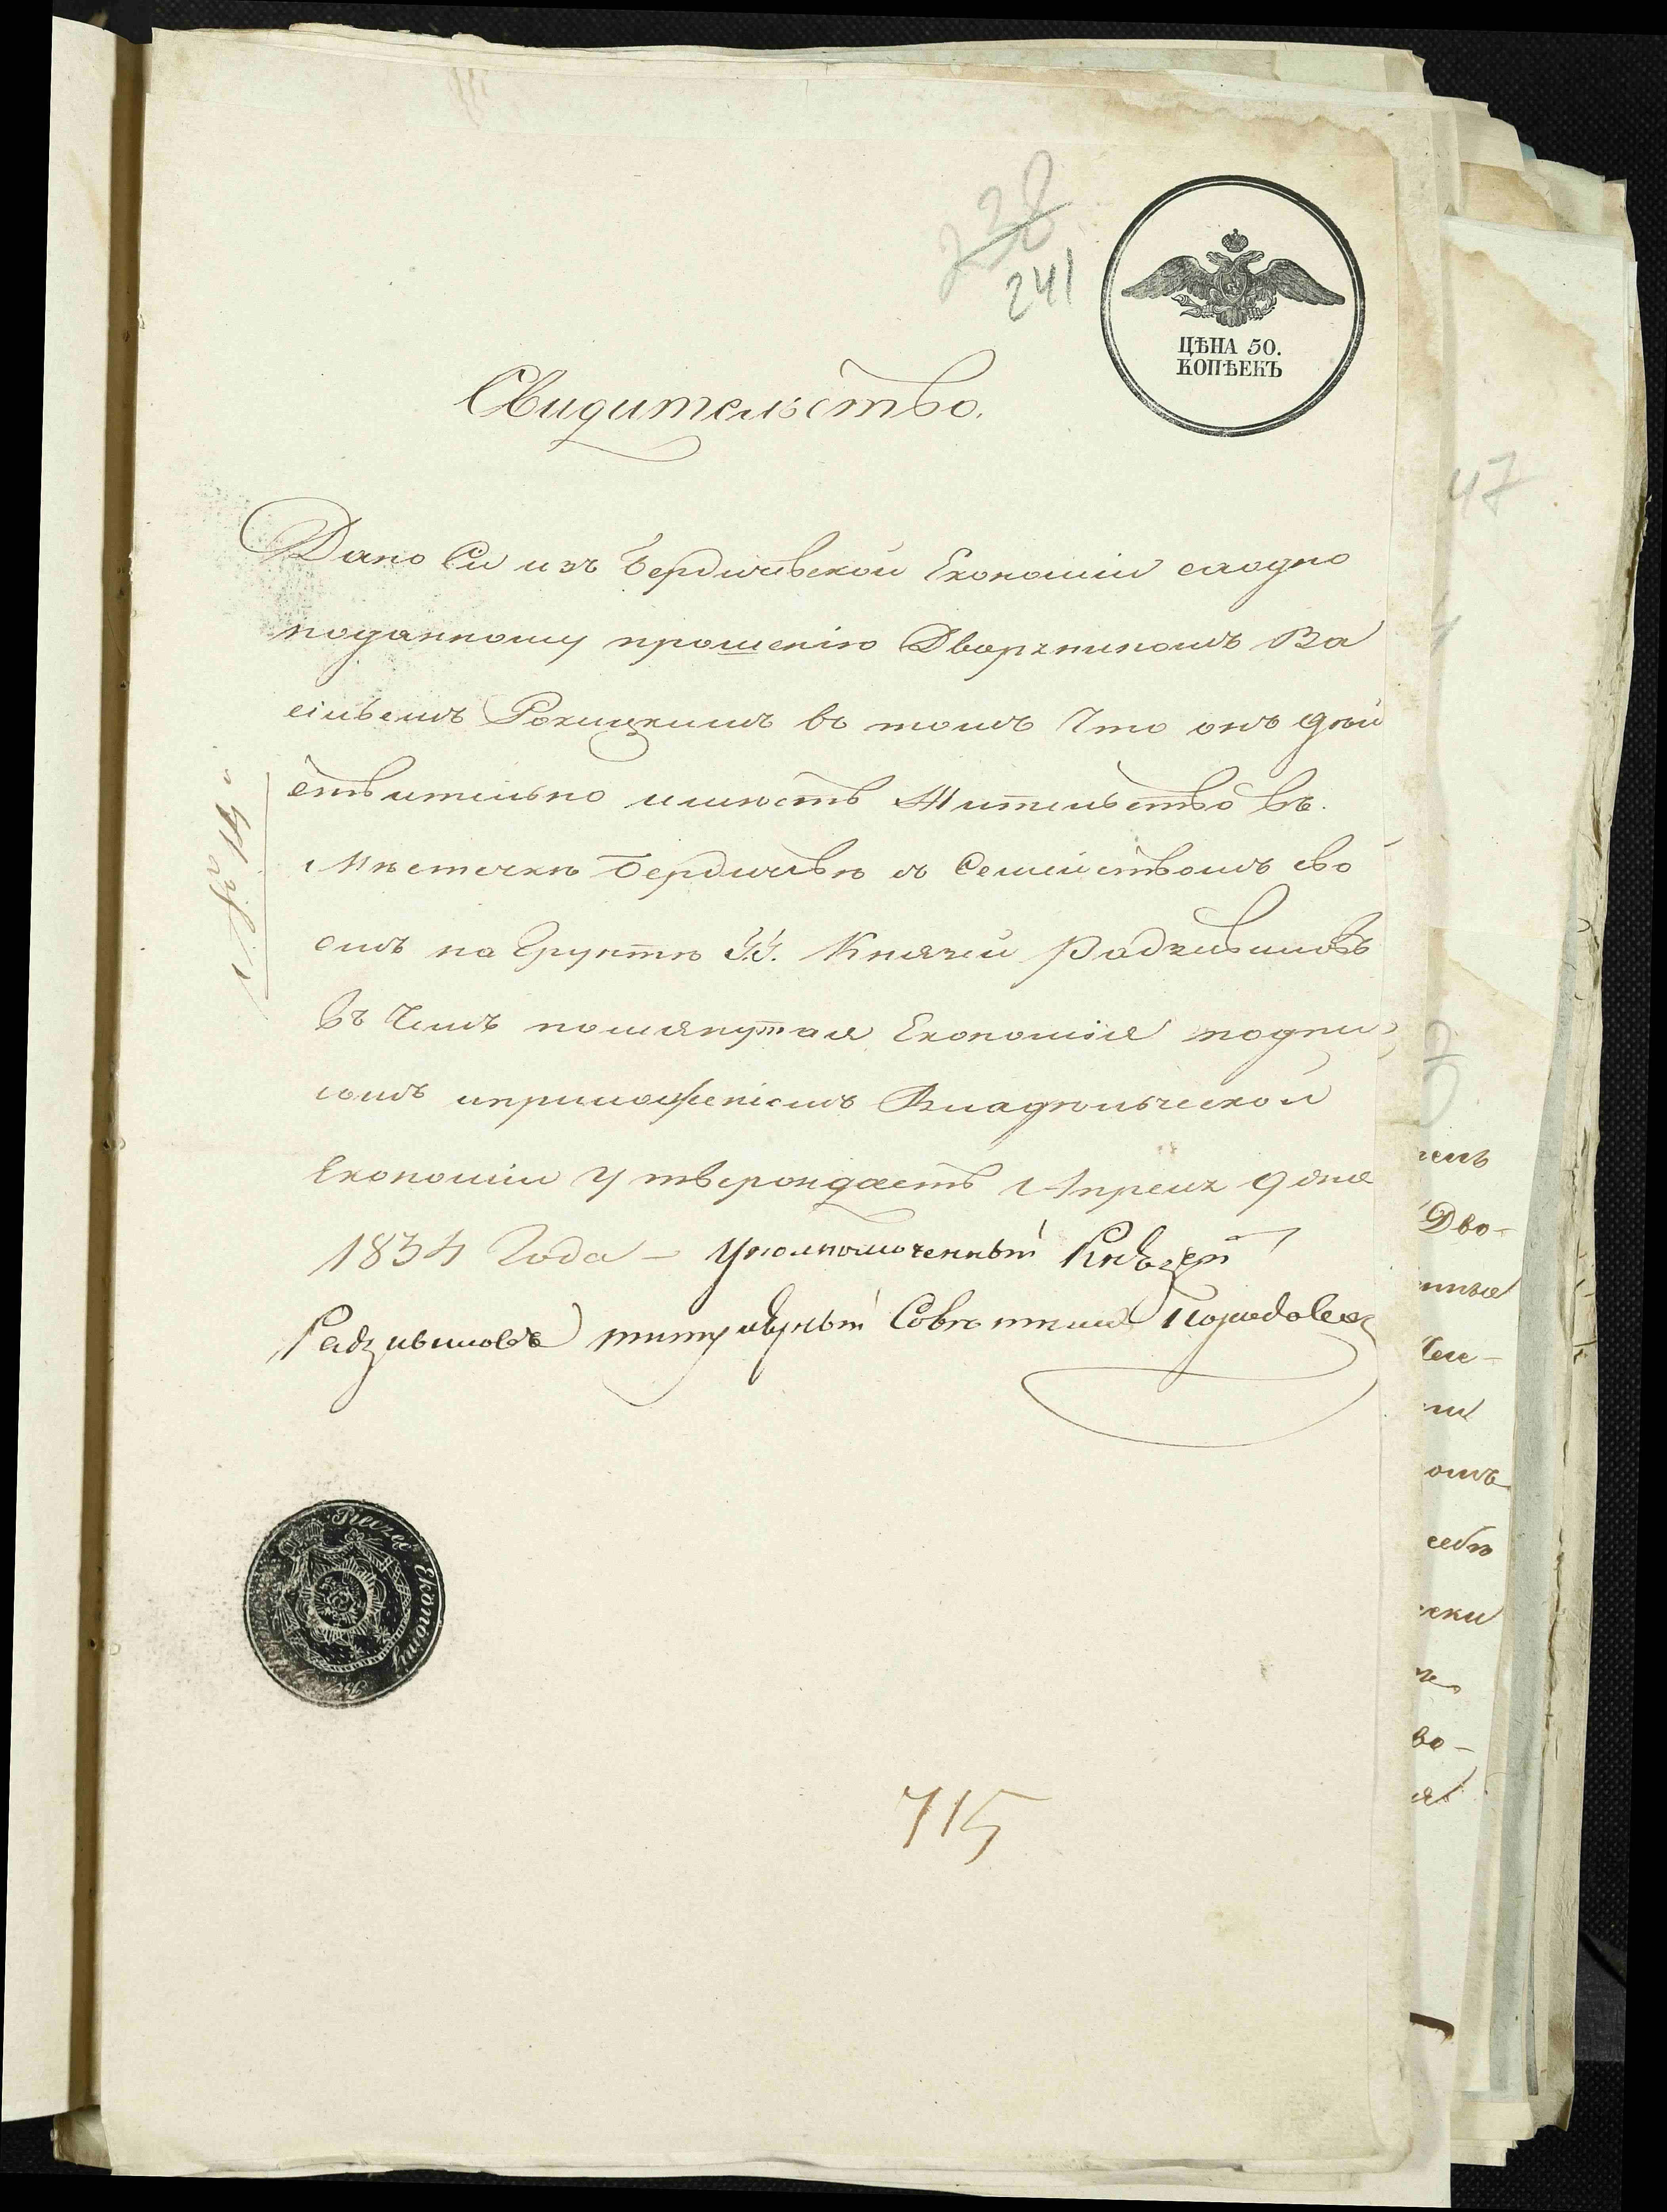 238
241
ЦѢНА 50.
КОПѢЕКЪ
Свидительство.
Дано Сие изъ Бердичевской Економіи слодно
поданному прошенію Дворяниномъ Ва
сільемъ Рокицкимъ въ томъ Что онъ дѣй
ствительно имѣетъ Жительство въ.
Мѣстечкѣ Бердичевѣ съ Семействомъ сво
емъ на Грунтѣ Князей Радзивиловъ
въ Чемъ помянутая Економія подпи
сомъ иприложеніемъ Владѣльческой
Економіи Утверждаетъ Апреля 9 дня
1834 Года — Уполномоченный Князей
Радзивиловъ титулярный Совѣтникъ
Pieczęć Ekonomij
715
47
Дво-
омъ
себѣ
во-